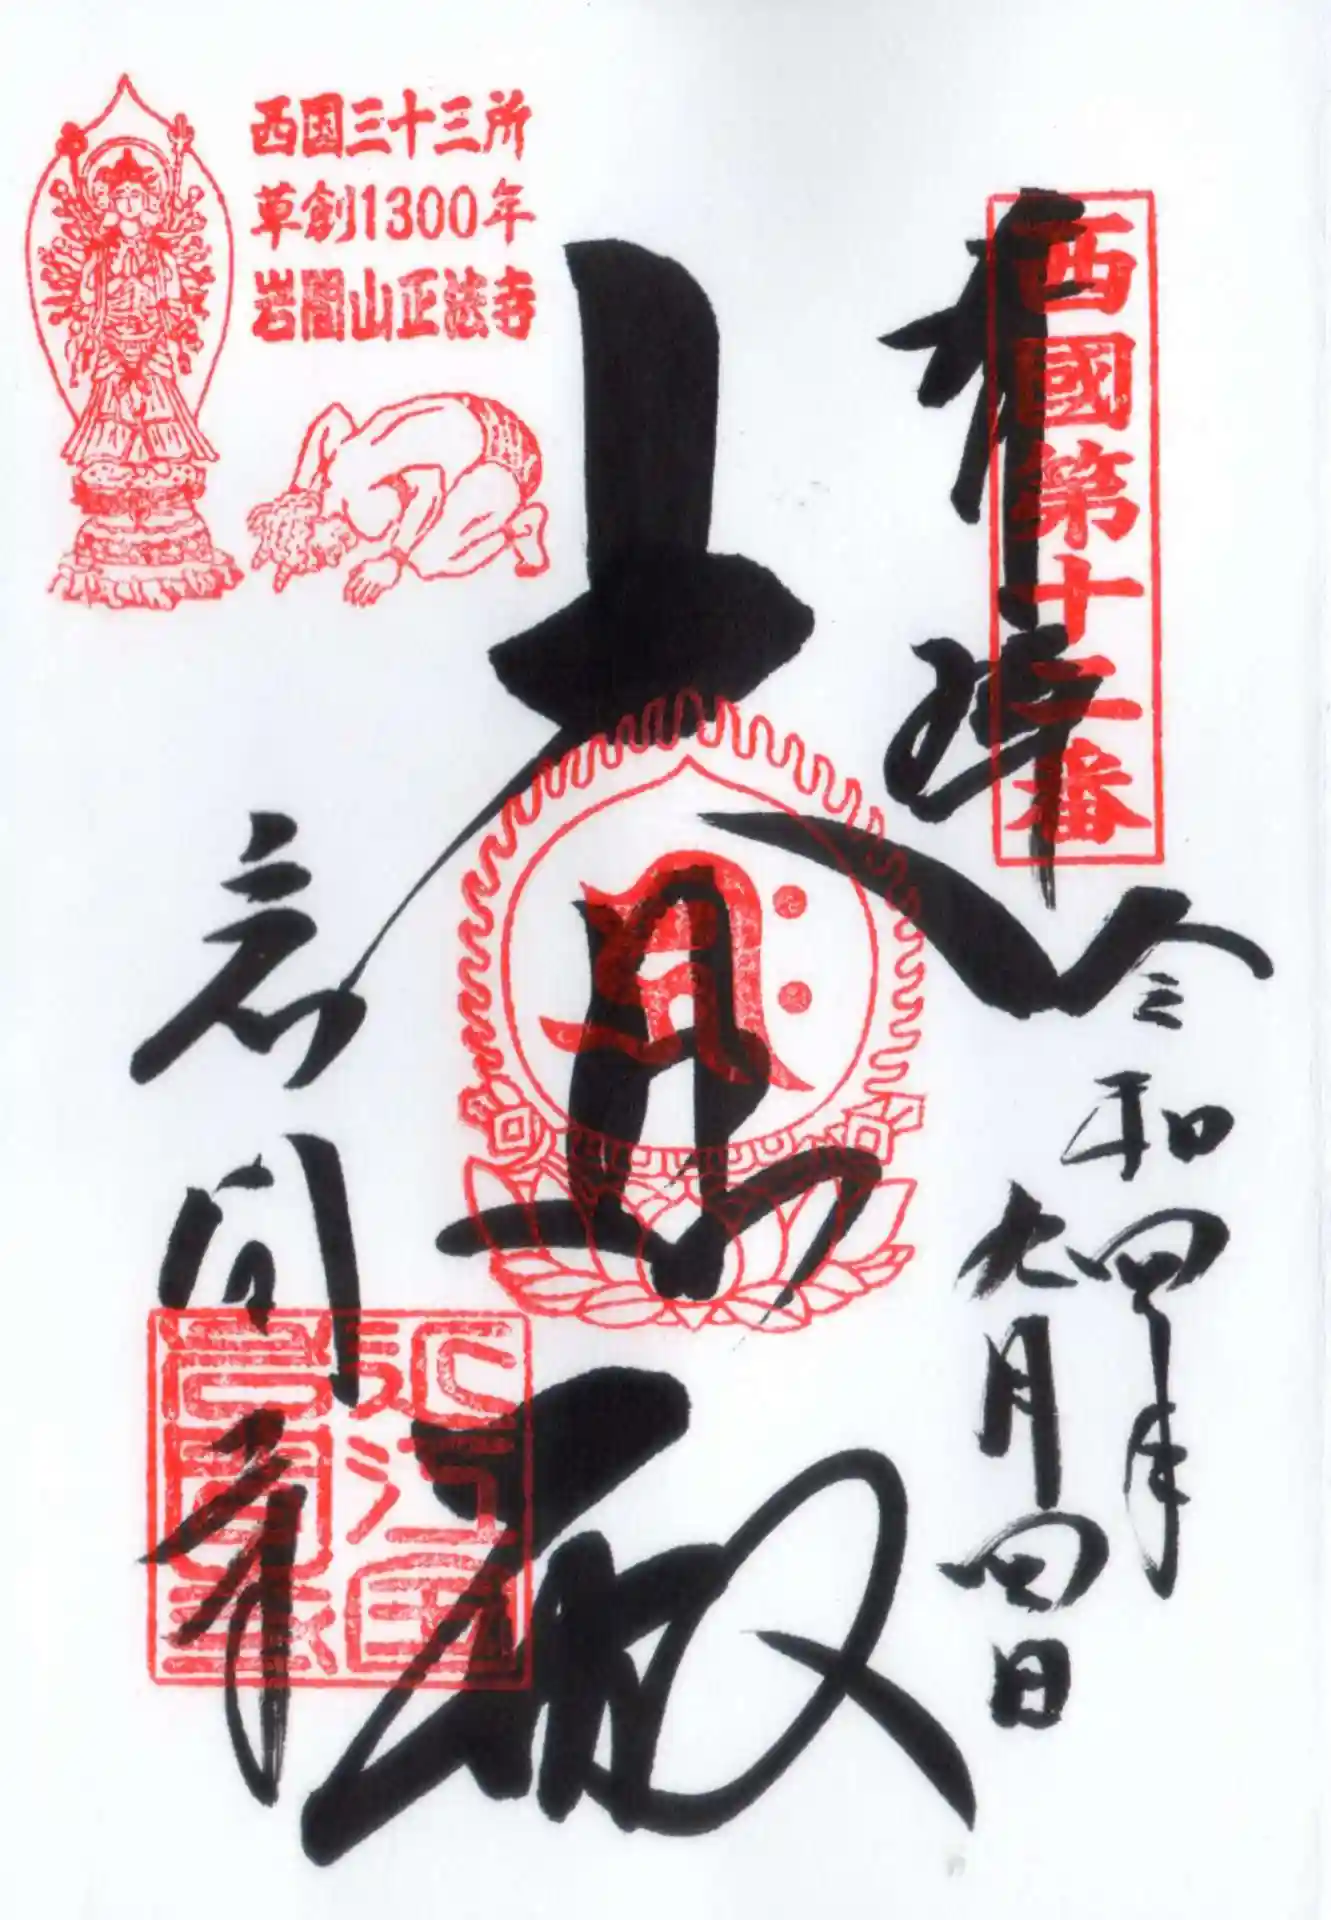 西国三十三所
草創1300年
岩間山正法寺
西國第十二番
奉拝
令和四年
九月四日
大悲殿
岩間寺
近江国
岩間寺